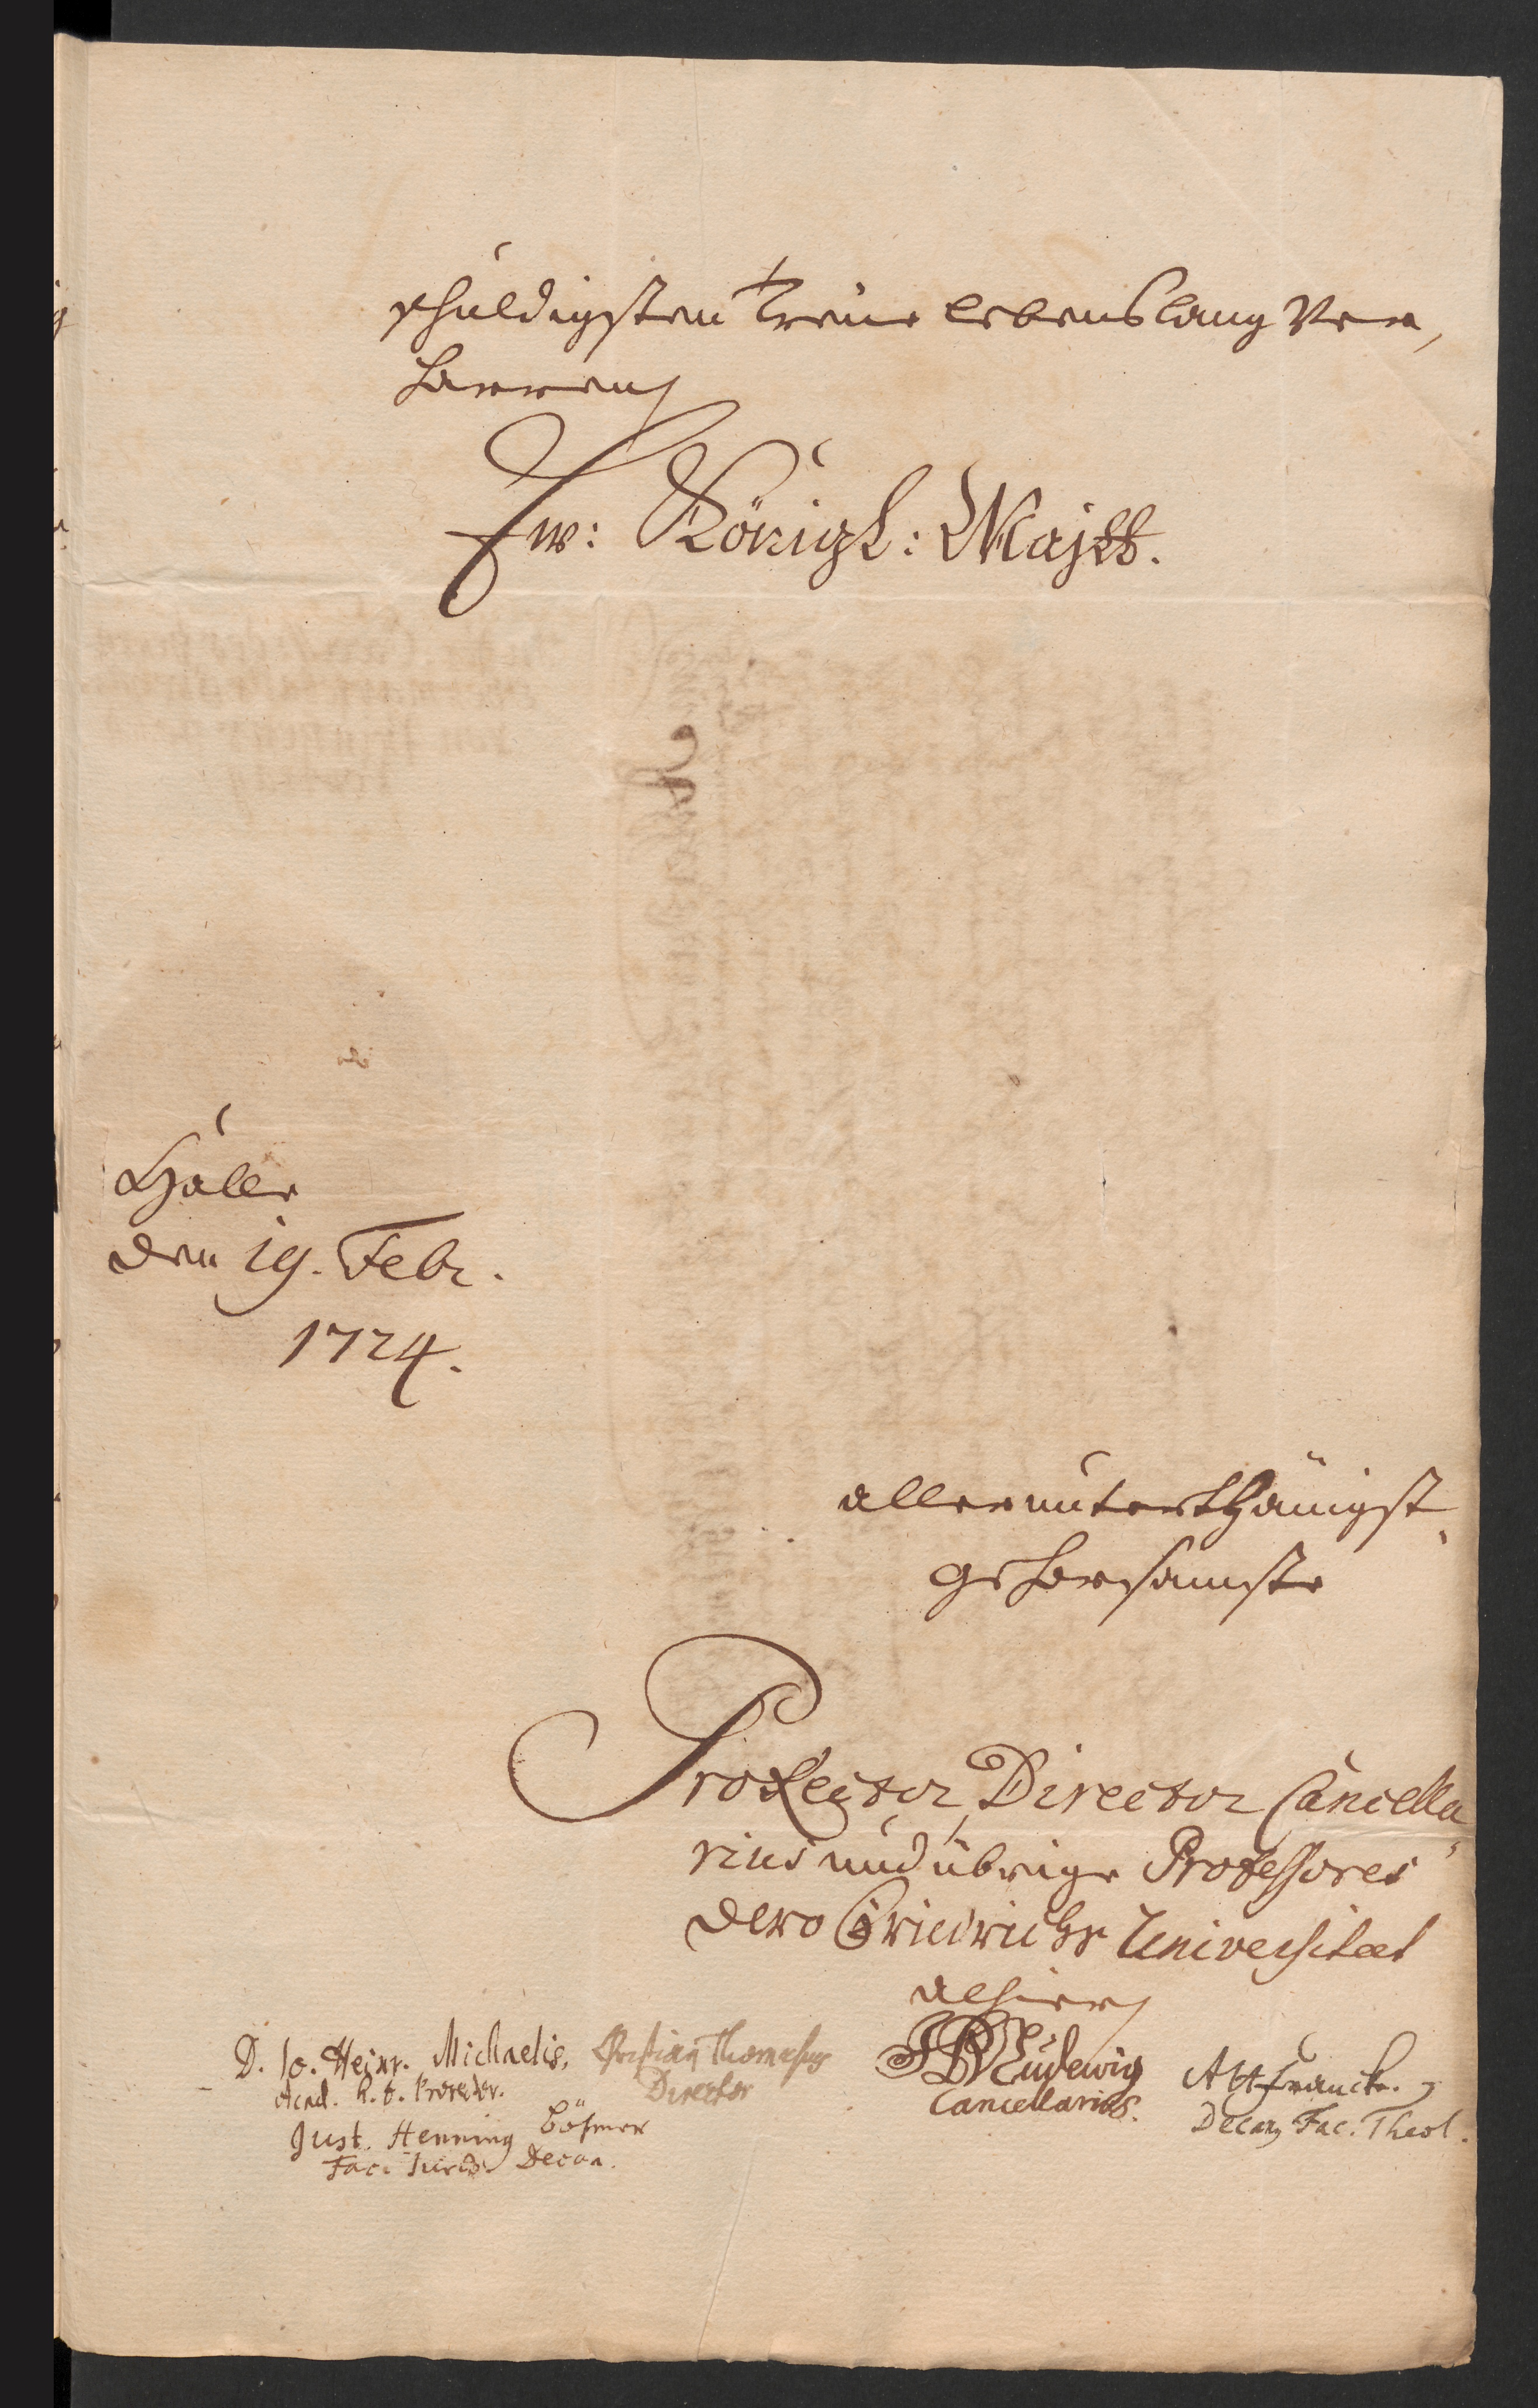 schuldigsten Treue lebenslang ver,
harren
Ew: Königl: Majtt.
Halle
den 19. Febr.
1724.
allerunterthänigst
gehorsamste
ProRector, Director Cancella
rius und übrige Professores
dero Friedrichs Universitaet
alhier
D. Jo. Heinr. Michaelis,
Acad. h. t. Prorector.
Christian Thomasius
Director
JPvLudewig
Cancellarius.
AHFrancke.
Decan Fac. Theol.
Just. Henning Böhmer
Fac. Jurid. Decan.